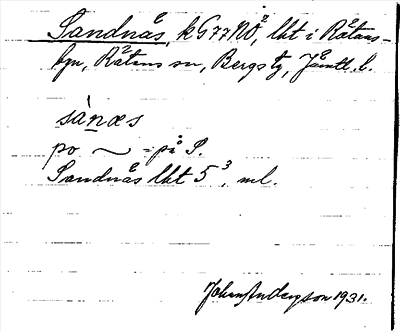 Sandnås, kG77NÖ, lht i Råtans-
byn, Råtans sn, Bergs tg, Jämtl. l.
sànæs
po ~ = på S.
Sandnås lht 5³, ml.
Johan Anderson 1931.